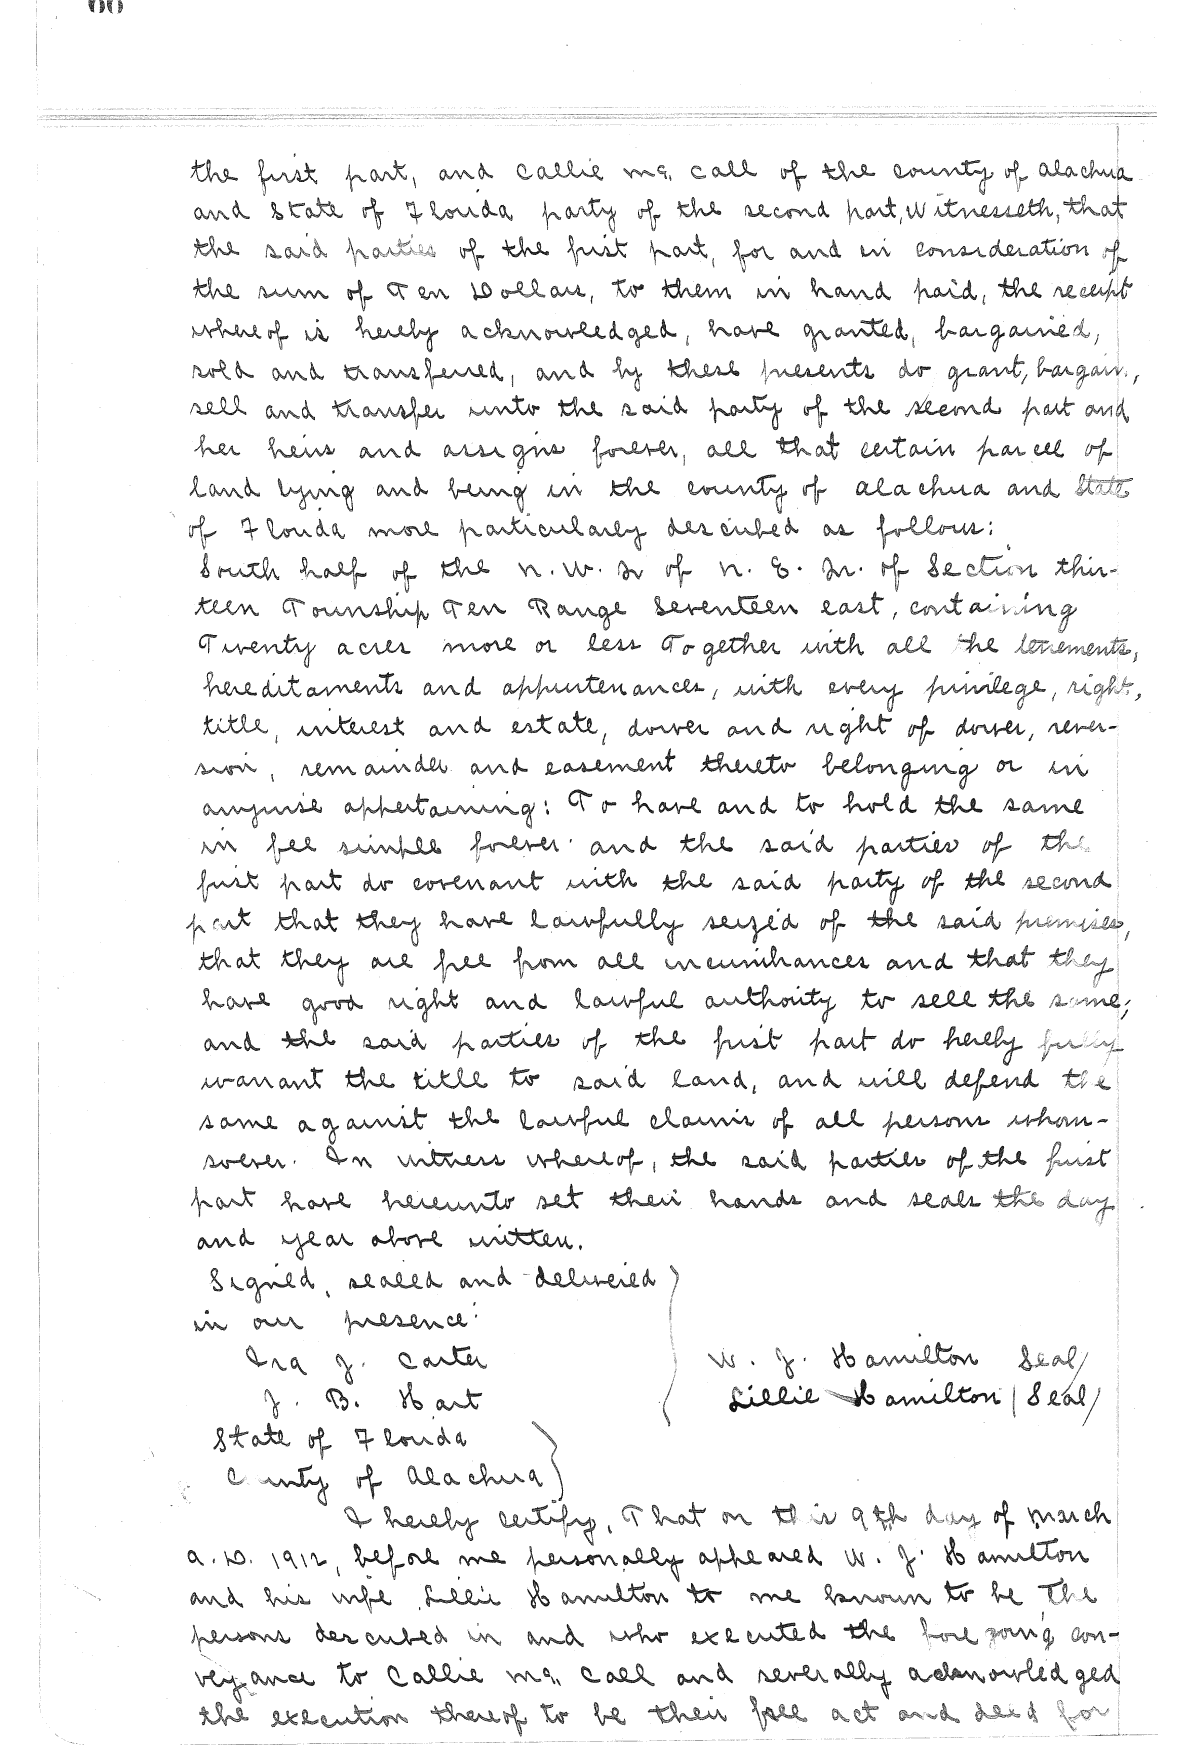 the first part, and Callie Mc. Call of the county of Alachua
and State of Florida party of the second part, Witnesseth, that
the said parties of the first part, for and in consideration of
the sum of Ten Dollars, to them in hand paid, the receipt
whereof is hereby acknowledged, have granted, bargained,
sold and transferred, and by these presents do grant, bargain,
sell and transfer unto the said party of the second part and
her heirs and assigns forever, all that certain parcel of
land lying and being in the county of Alachua and State
of Florida more particularly described as follows:
South half of the N. W. 1/4 of N. E. 1/4. of Section thir-
teen Township Ten Range Seventeen east, containing
Twenty acres more or less Together with all the tenements,
hereditaments and appurtenances, with every privilege, right,
title, interest and estate, dower and right of dower, rever-
sion, remainder and easement thereto belonging or in
anywise appertaining: To have and to hold the same
in fee simple forever. and the said parties of the
first part do covenant with the said party of the second
part that they have lawfully seized of the said premises,
that they are free from all incumbrances and that they
have good right and lawful authority to sell the same;
and the said parties of the first part do hereby fully
warrant the title to said land, and will defend the
same against the lawful claims of all persons whom-
soever. In witness whereof, the said parties of the first
part have hereunto set their hands and seals the day
and year above written.
Signed, sealed and delivered
in our presence:
Ira J. Carter W. J. Hamilton Seal/
J. B. Hart Lillie Hamilton (Seal/
State of Florida
County of Alachua
I hereby certify, That on this 9th day of March
A. D. 1912, before me personally appeared W. J. Hamilton
and his wife Lillie Hamilton to me known to be the
persons described in and who executed the foregoing con-
veyance to Callie Mc. Call and severally acknowledged
the execution thereof to be their free act and deed for